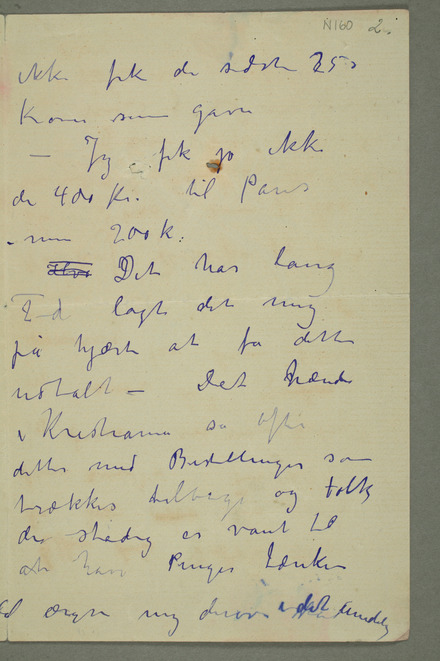 N160 2.
ikke fik de sidste 250
Kroner som gave
– Jeg fik jo ikke
de 400 Kr. til Paris
– men 200 k.
Det har lang
Tid lagt det mig
på hjerte at få dette
udtalt – Det hænder
i Kristiania så ofte
dette med Bestillinger som
trækkes tilbage og folk
der stadig er vant til
at have Penger tænker
ærgre mig derover det